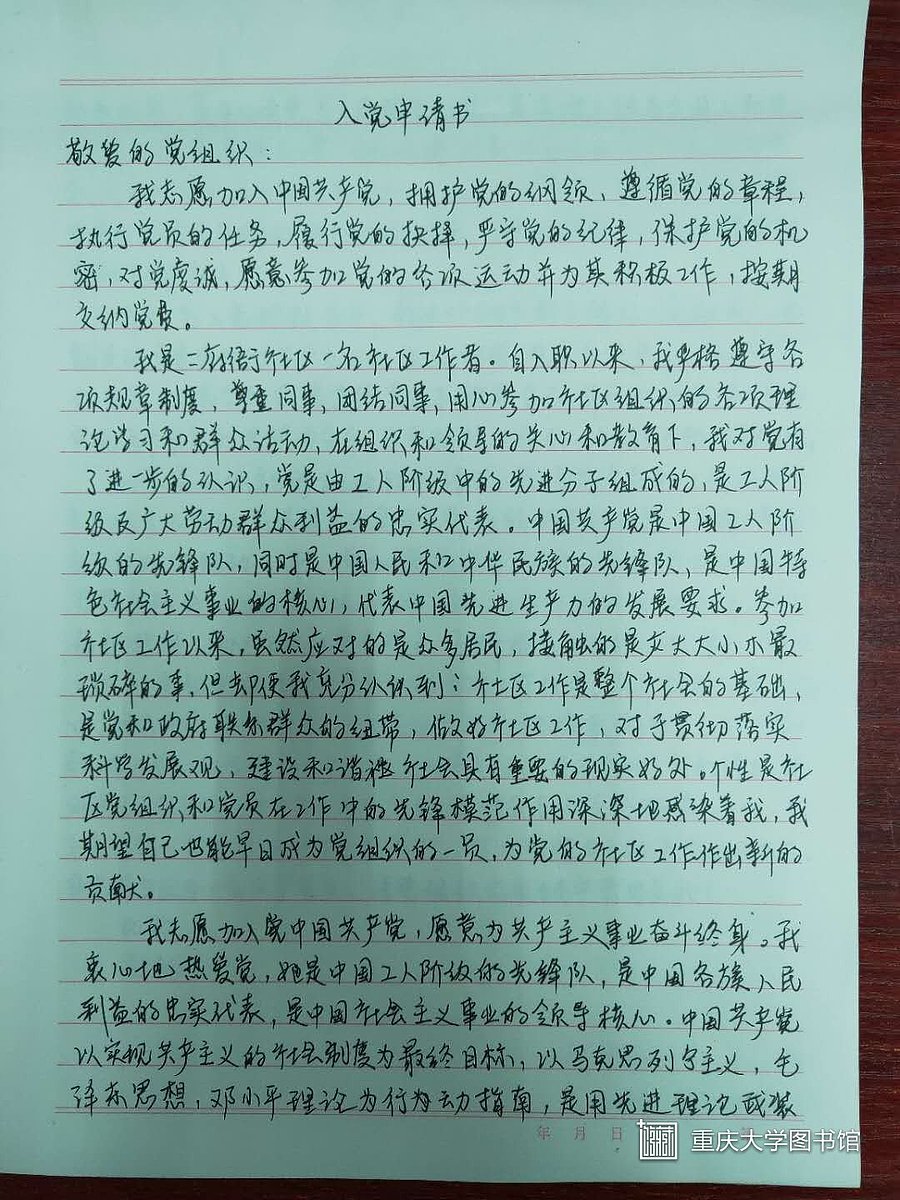 入党申请书
敬爱的党组织：
我志愿加入中国共产党，拥护党的纲领，遵循党的章程，
执行党员的任务，履行党的抉择，严守党的纪律，保护党的机
密，对党虔诚，愿意参加党的各项运动并为其积极工作，按期
交纳党费。
我是二府衙社区一名社区工作者。自入职以来，我严格遵守各
项规章制度，尊重同事，团结同事，用心参加社区组织的各项理
论学习和群众活动，在组织和领导的关心和教育下，我对党有
了进一步的认识，党是由工人阶级中的先进分子组成的，是工人阶
级及广大劳动群众利益的忠实代表。中国共产党是中国工人阶
级的先锋队，同时是中国人民和中华民族的先锋队，是中国特
色社会主义事业的核心，代表中国先进生产力的发展要求。参加
社区工作以来，虽然应对的是众多居民，接触的是大大小小最
琐碎的事，但却使我充分认识到：社区工作是整个社会的基础，
是党和政府联系群众的纽带，做好社区工作，对于贯彻落实
科学发展观，建设和谐社会具有重要的现实好处。个性是社
区党组织和党员在工作中的先锋模范作用深深地感染着我，我
期望自己也能早日成为党组织的一员，为党的社区工作作出新的
贡献。
我志愿加入党中国共产党，愿意为共产主义事业奋斗终身。我
衷心地热爱党，她是中国工人阶级的先锋队，是中国各族人民
利益的忠实代表，是中国社会主义事业的领导核心。中国共产党
以实现共产主义的社会制度为最终目标，以马克思列宁主义，毛
泽东思想，邓小平理论为行为动指南，是用先进理论武装
年 月 日
重庆大学图书馆